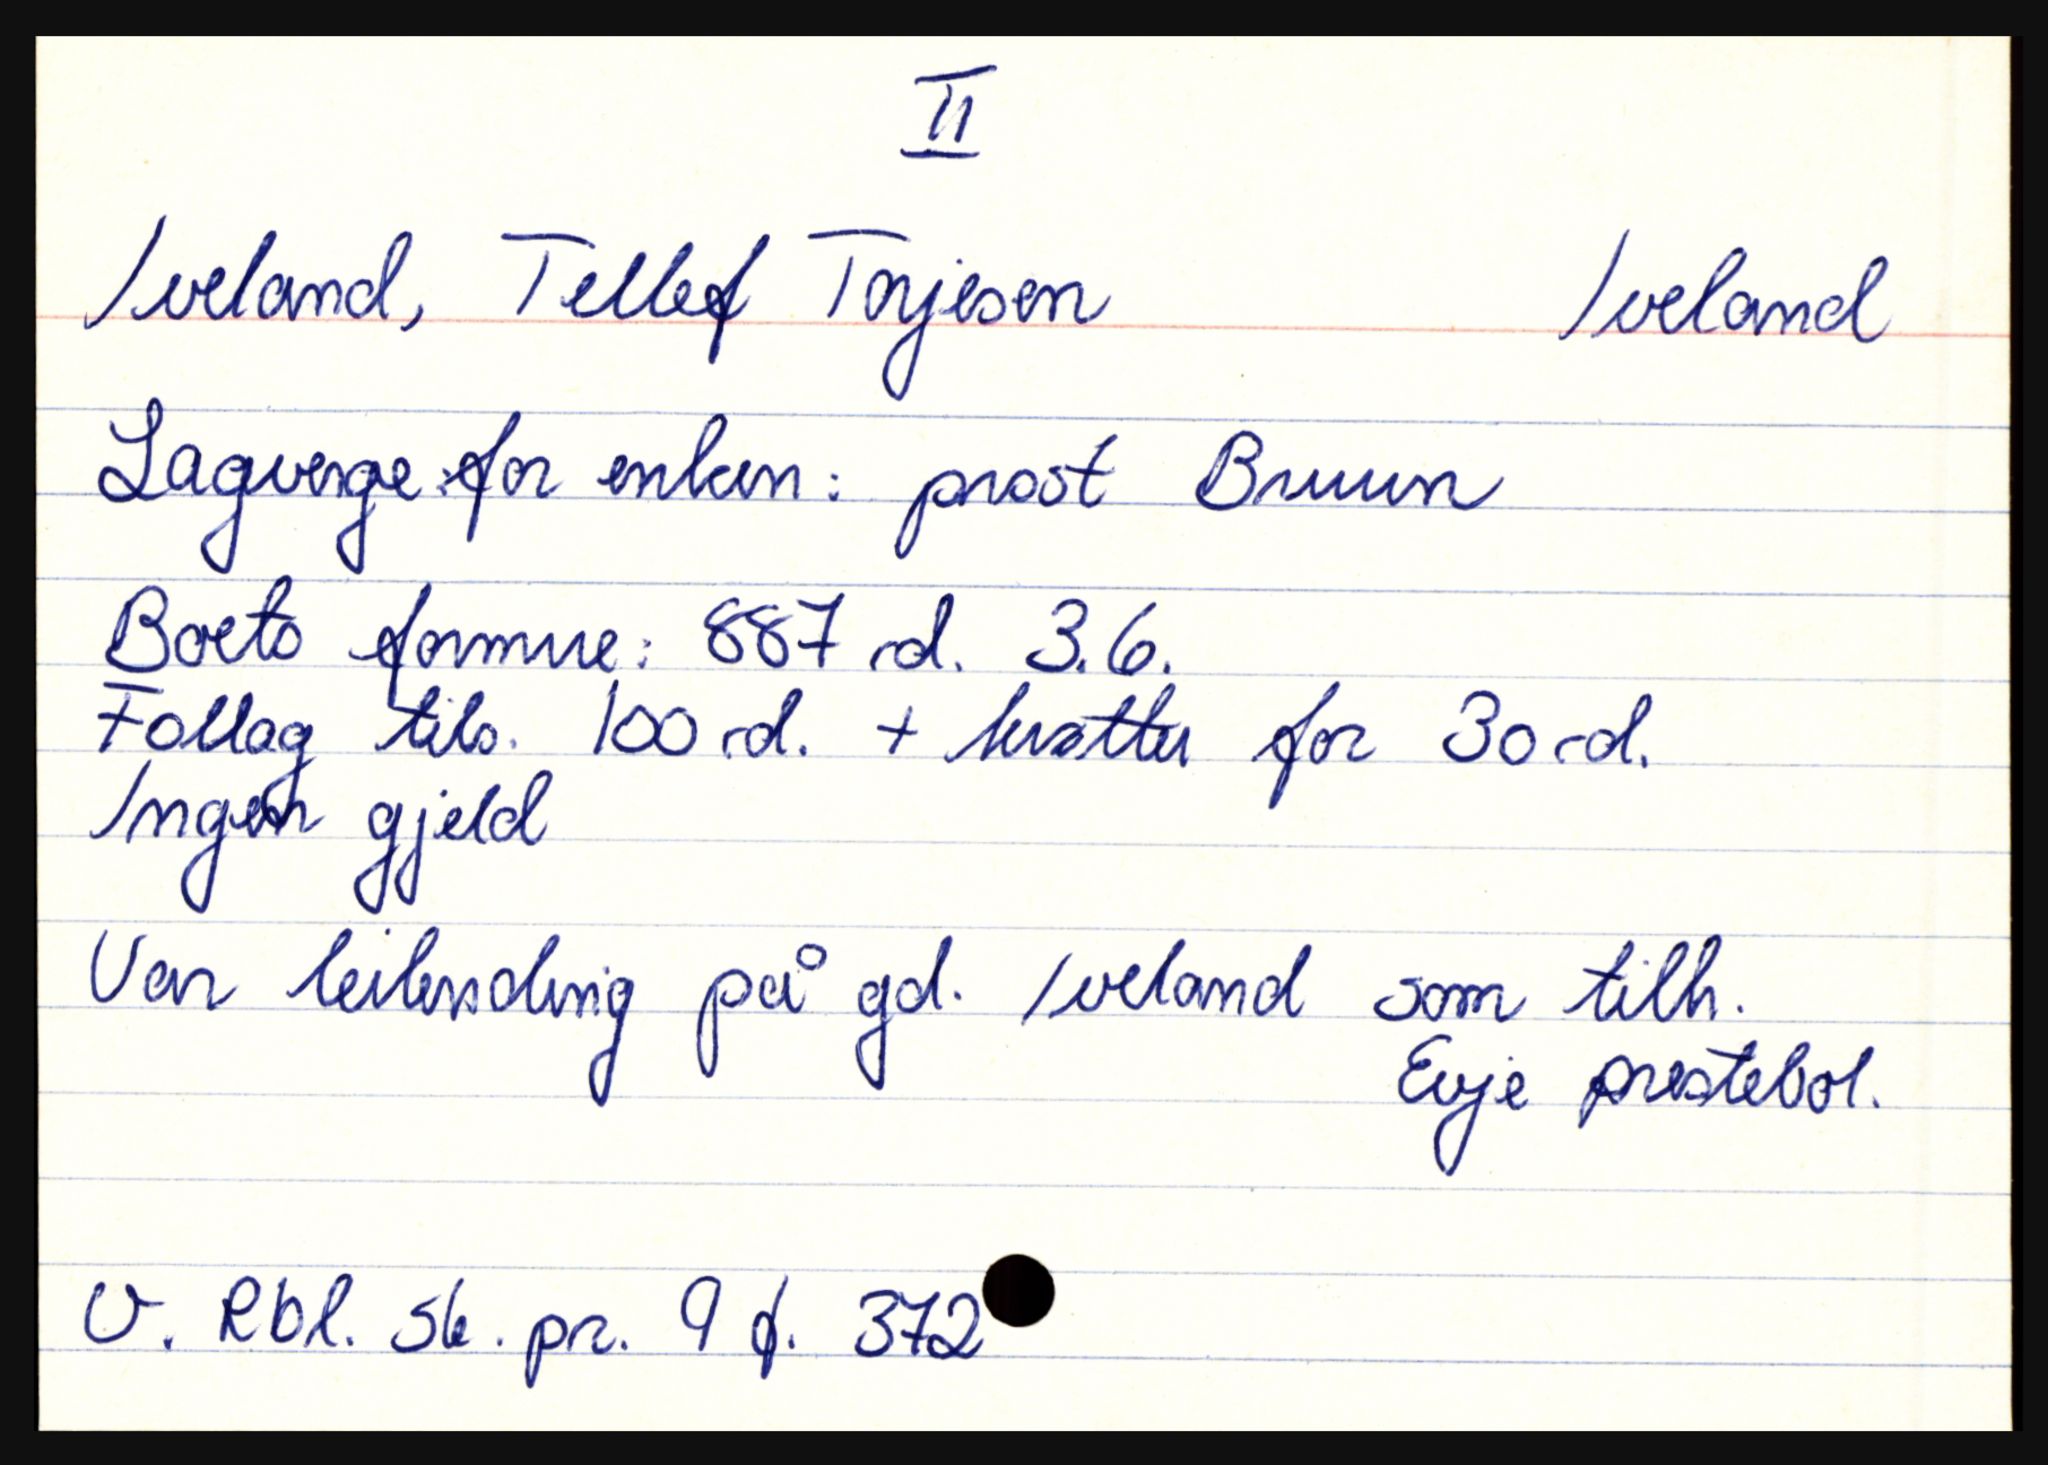 II
Iveland, Tellef Torjesen Iveland
Lagverge for enken: prost Bruun
Boets formue: 887 rd. 3.6.
Følløg tils. 100 rd. + for 30 rd.
Ingen gjeld
Var leilending på gd. Iveland som tilh.
Evje prestebol.
V. Rbl. sk. pr. 9 f. 372